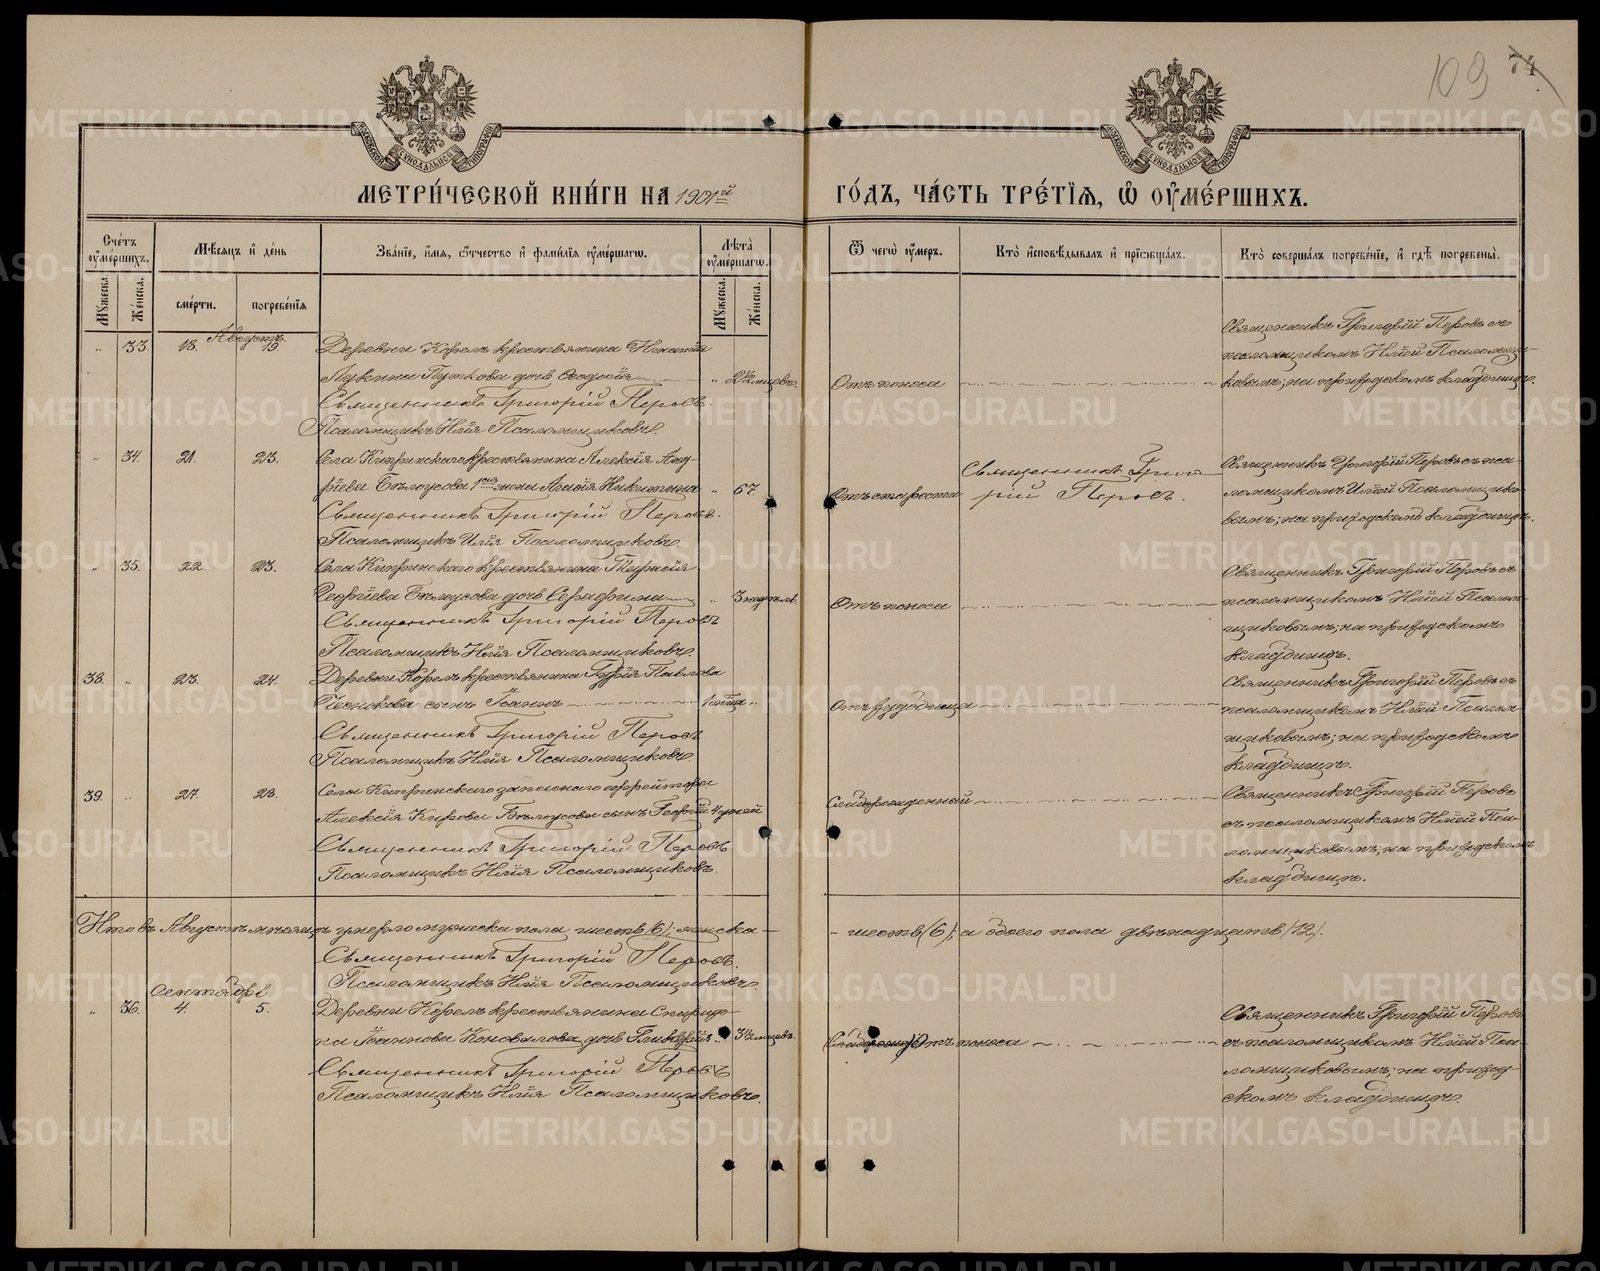 109 74
МОСКОВСКОЙ СУНОДАЛЬНОЙ ТИПОГРАФІИ
МОСКОВСКОЙ СУНОДАЛЬНОЙ ТИПОГРАФІИ
МЕТРИ́ЧЕСКОЙ КНИ́ГИ НА 1901й
ГО́ДЪ, ЧА́СТЬ ТРЕ́ТІѦ, Ѡ҆ ОУ҆МЕ́РШИХЪ.
Сче́тъ оу҆ме́ршихъ.
Мѣ́сяцъ и҆ де́нь
Зва́ніе, и҆́мя, ѻ҆́тчество и҆ фами́лія оу҆ме́ршагѡ.
Лѣ́та оу҆ме́ршагѡ.
Ѿ чегѡ̀ оу҆́меръ.
Кто̀ и҆сповѣ́дывалъ и҆ прїѡбща́лъ.
Кто̀ соверша́лъ погребе́ніе, и҆ гдѣ̀ погребены̀.
Мꙋ́жеска.
Же́нска.
сме́рти.
погребе́нія
Мꙋ́жеска.
Же́нска.
Августъ.
„ 33. 18. 19
Деревни Корелъ крестьянина Игнатія
Лукина Путкова дочь Ѳеодосія „ 2½ мѣсев.
Священникъ Григорій Перовъ.
Псаломщикъ Илія Псаломщиковъ.
Отъ поноса
Священникъ Григорій Перовъ съ
псаломщикомъ Иліей Псаломщи-
ковымъ; на приходскомъ кладбищѣ.
„ 34. 21. 23.
Села Кипринскаго крестьянина Алексія Анд-
рѣева Бѣлоусова жена Агафія Никитина „ 67.
Священникъ Григорій Перовъ.
Псаломщикъ Илія Псаломщиковъ.
Отъ старости
Священникъ Григо
рій Перовъ.
Священникъ Григорій Перовъ съ пса-
ломщикомъ Иліей Псаломщико-
вымъ; на приходскомъ кладбищѣ.
„ 35. 22. 23.
Села Кипринскаго крестьянина Тарасія
Георгіева Бѣлоусова дочь Серафима „ 3 недѣль.
Священникъ Григорій Перовъ
Псаломщикъ Илія Псаломщиковъ.
Отъ поноса
Священникъ Григорій Перовъ съ
псаломщикомъ Иліей Псалом-
щиковымъ; на приходскомъ
кладбищѣ.
38. „ 23. 24.
Деревни Корелъ крестьянина Гурія Павлова
Чеснокова сынъ Іоаннъ
Священникъ Григорій Перовъ
Псаломщикъ Илія Псаломщиковъ.
Отъ худобища
Священникъ Григорій Перовъ съ
псаломщикомъ Иліей Псалом-
щиковымъ; на приходскомъ
кладбищѣ.
39. „ 27. 28.
Села Кипринскаго запаснаго ефрейтора
Алексія Кирова Бѣлоусова сынъ Георгій 4 дней
Священникъ Григорій Перовъ
Псаломщикъ Илія Псаломщиковъ.
Слаборожденный
Священникъ Григорій Перовъ
съ псаломщикомъ Иліей Пса-
ломщиковымъ; на приходскомъ
кладбищѣ.
Итого въ Августѣ мѣсяцѣ умерло мужеска пола шесть (6); женска —
- шесть (6); а обоего пола двѣнадцать (12).
Священникъ Григорій Перовъ.
Псаломщикъ Илія Псаломщиковъ.
Сентябрь.
„ 36. 4. 5.
Деревни Корелъ крестьянина Спиридо-
на Іоаннова Коновалова дочь Гликерія „ 3½ мѣсев.
Священникъ Григорій Перовъ
Псаломщикъ Илія Псаломщиковъ.
Отъ поноса
Священникъ Григорій Перовъ
съ псаломщикомъ Иліей Пса-
ломщиковымъ; на приход-
скомъ кладбищѣ.
METRIKI.GASO-URAL.RU